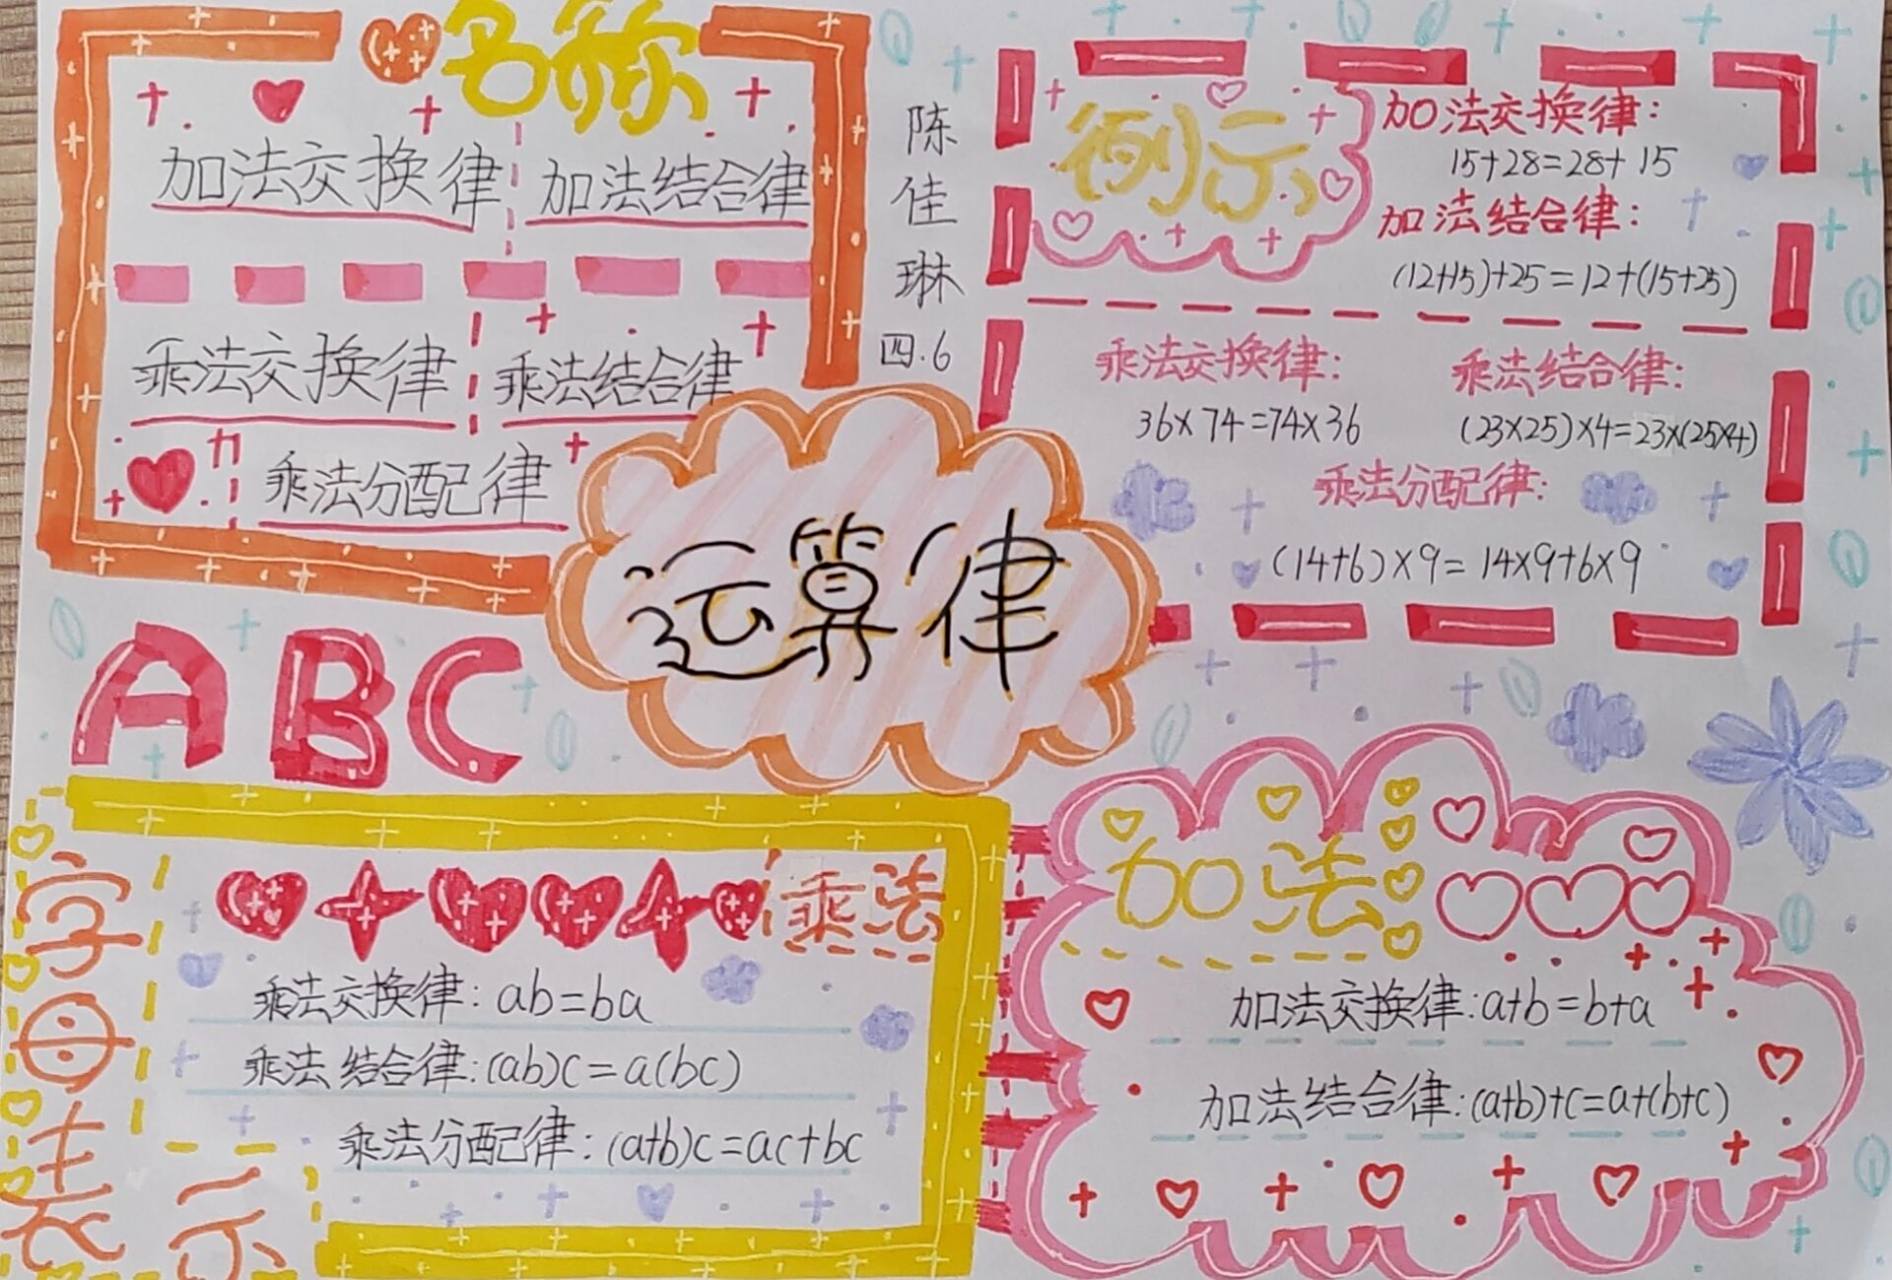 名称
加法交换律 加法结合律
乘法交换律 乘法结合律
乘法分配律
陈佳琳
四.6
例示
加法交换律:
15+28=28+15
加法结合律:
(12+15)+25=12+(15+25)
乘法交换律: 乘法结合律:
36×74=74×36 (23×25)×4=23×(25×4)
乘法分配律:
(14+6)×9=14×9+6×9
运算律
ABC
字母表示
乘法
乘法交换律: ab=ba
乘法结合律:(ab)c=a(bc)
乘法分配律:(a+b)c=ac+bc
加法
加法交换律:a+b=b+a
加法结合律:(a+b)+c=a+(b+c)